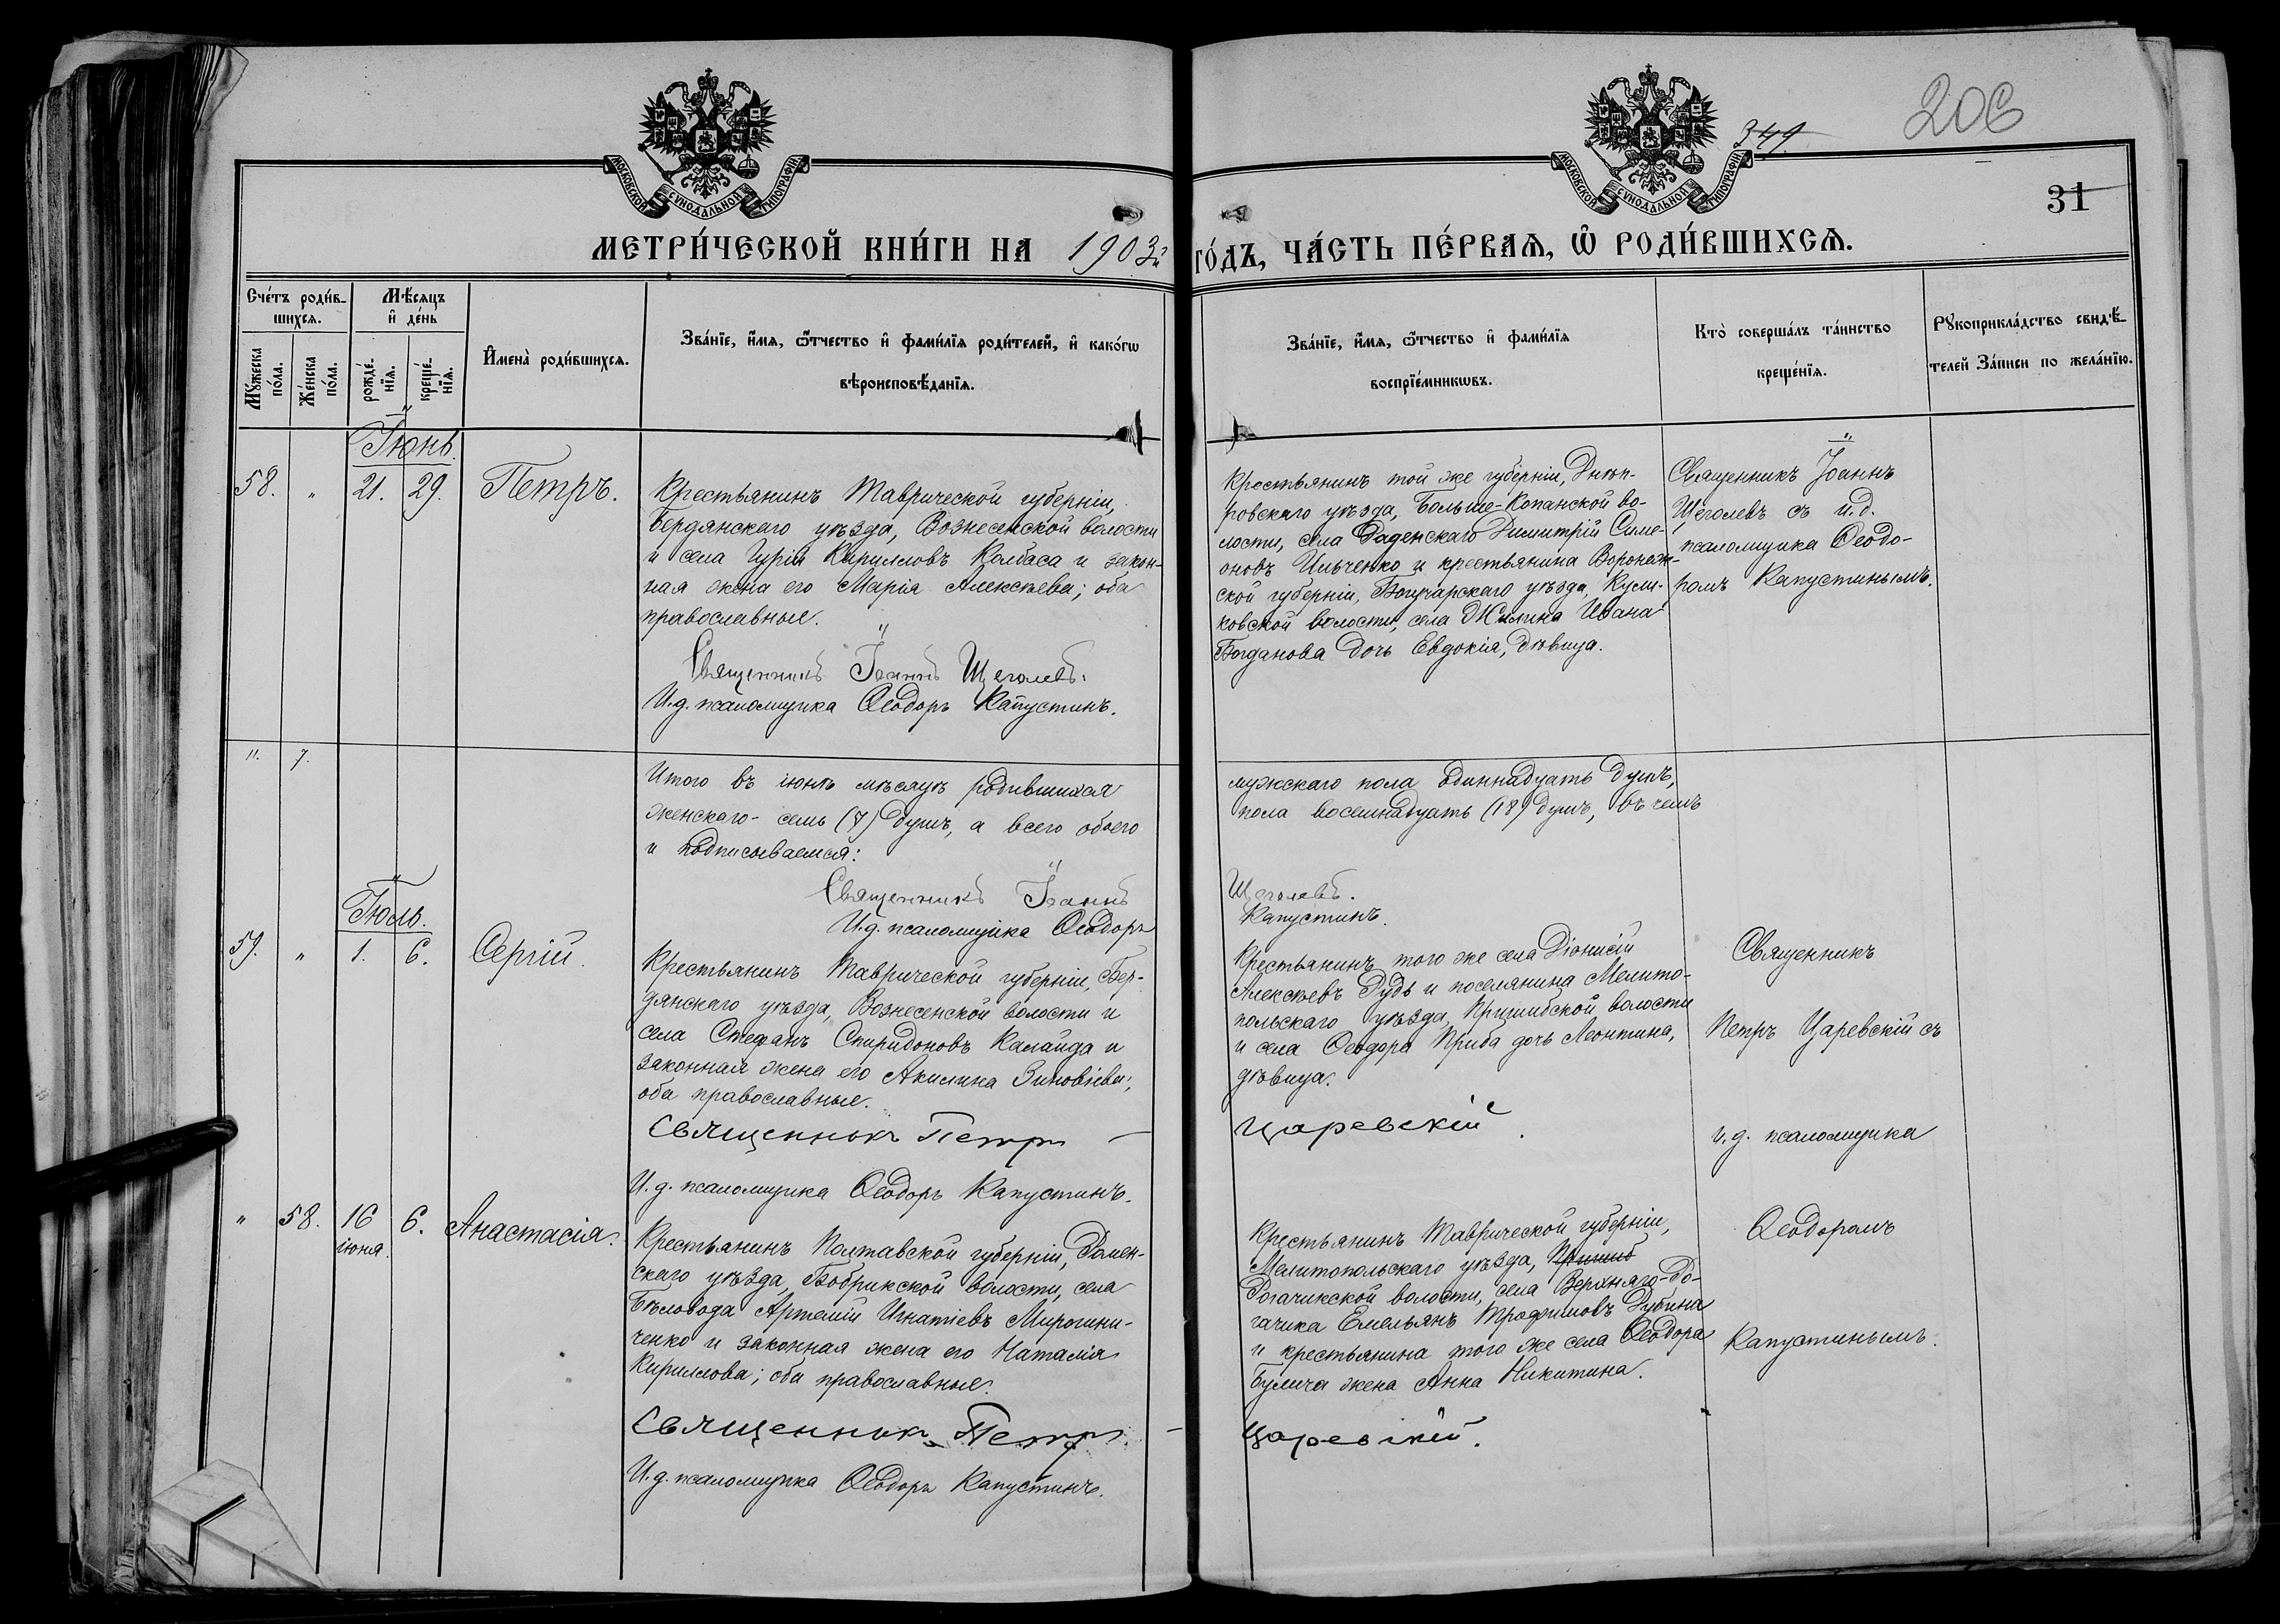 206
349
31
МОСКОВСКОЙ СѴНОДАЛЬНОЙ ТИПОГРАФІИ
МОСКОВСКОЙ СѴНОДАЛЬНОЙ ТИПОГРАФІИ
МЕТРИ́ЧЕСКОЙ КНИ́ГИ НА 1903й
ГО́ДЪ, ЧА́СТЬ ПЕ́РВАѦ, Ѿ РОДИ́ВШИХСѦ.
Сче́тъ роди́в-
шихсѧ.
Мѣ́сѧцъ
и҆ де́нь
Мꙋ́жеска
по́ла.
Же́нска
по́ла.
рожде́-
нїѧ.
креще́-
нїѧ.
И҆мена̀ роди́вшихсѧ.
Зва́нїе, и҆́мѧ, ѻ҆́тчество и҆ фами́лїѧ роди́телей, и҆ како́гѡ
вѣроисповѣ́данїѧ.
Зва́нїе, и҆́мѧ, ѻ҆́тчество и҆ фами́лїѧ
воспрїе́мникѡвъ.
Кто̀ соверша́лъ та́инство
креще́нїѧ.
Рꙋкоприкла́дство свидѣ́-
телей За́писи по жела́нїю.
Іюнь.
58. " 21. 29. Петръ.
Крестьянинъ Таврической губерніи,
Бердянскаго уѣзда, Вознесенской волости
и села Гурій Кирилловъ Колбаса и закон-
ная жена его Марія Алексѣева; оба
православные.
Священникъ Іоаннъ Щеголевъ.
И.д. псаломщика Ѳеодоръ Капустинъ.
Крестьянинъ той же губерніи, Днѣп-
ровскаго уѣзда, Больше-Копанской во-
лости, села Раденскаго Димитрій Симе-
оновъ Ильченко и крестьянина Воронеж-
ской губерніи, Богучарскаго уѣзда, Кули-
ковской волости, села Жилина Ивана
Богданова дочь Евдокія, дѣвица.
Священникъ Іоаннъ
Щеголевъ съ и.д.
псаломщика Ѳеодо-
ромъ Капустинымъ.
11. 7.
Итого въ іюнѣ мѣсяцѣ родившихся
женскаго - семь (7) душъ, а всего обоего
и подписываемся:
Священникъ Іоаннъ
И.д. псаломщика Ѳеодоръ
мужскаго пола одиннадцать душъ,
пола восемнадцать (18) душъ, въ чемъ
Щеголевъ.
Капустинъ.
Іюль.
59. " 1. 6. Сергій.
Крестьянинъ Таврической губерніи, Бер-
дянскаго уѣзда, Вознесенской волости и
села Стефанъ Спиридоновъ Калайда и
законная жена его Акилина Зиновіева;
оба православные.
Священникъ Петръ
И.д. псаломщика Ѳеодоръ Капустинъ.
Крестьянинъ того же села Діонисій
Алексѣевъ Дудь и поселянина Мелито-
польскаго уѣзда, Пришибской волости
и села Ѳеодора Приба дочь Леонтина,
дѣвица.
Царевскій.
Священникъ
Петръ Царевскій съ
и.д. псаломщика
Ѳеодоромъ
Капустинымъ.
" 58. 16 6. Анастасія.
іюня.
Крестьянинъ Полтавской губерніи, Ромен-
скаго уѣзда, Бобрикской волости, села
Бѣловода Артемій Игнатіевъ Мирошни-
ченко и законная жена его Наталія
Кириллова; оба православные.
Священникъ Петръ
И.д. псаломщика Ѳеодоръ Капустинъ.
Крестьянинъ Таврической губерніи,
Мелитопольскаго уѣзда, Пришиб
Рогачикской волости, села Верхняго-Ро-
гачика Емельянъ Трофимовъ Дубина
и крестьянина того же села Ѳеодора
Булича жена Анна Никитина.
Царевскій.